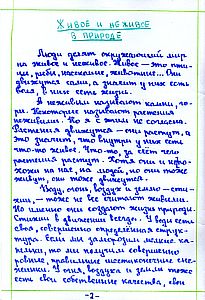 ЖИВОЕ И НЕЖИВОЕ
В ПРИРОДЕ
Люди делят окружающий мир
на живое и неживое. Живое — это
птицы, рыбы, насекомые, животные... Они
движутся сами, а значит у них есть
воля, в них есть жизнь.
А неживыми называют камни, го-
ры. Некоторые называют растения
неживыми. Но я с этим не согласен.
Растения движутся — они растут, а
это значит, что внутри у них есть
что-то живое, что-то, за счёт чего
растения растут. Хотя они и непо-
хожи на нас, на людей, но они тоже
живут, они тоже движутся.
Воду, огонь, воздух и землю — сти-
хии, — тоже не все считают живыми.
Но именно они создают жизнь природы.
Стихии в движении всегда. У воды есть
своя, совершенно определённая струк-
тура. Если мы заморозим мелкие ка-
пельки, то мы получим совершенно
ровные, правильные шестиконечные сне-
жинки. У огня, воздуха и земли тоже
есть свои собственные качества, свои
-2-